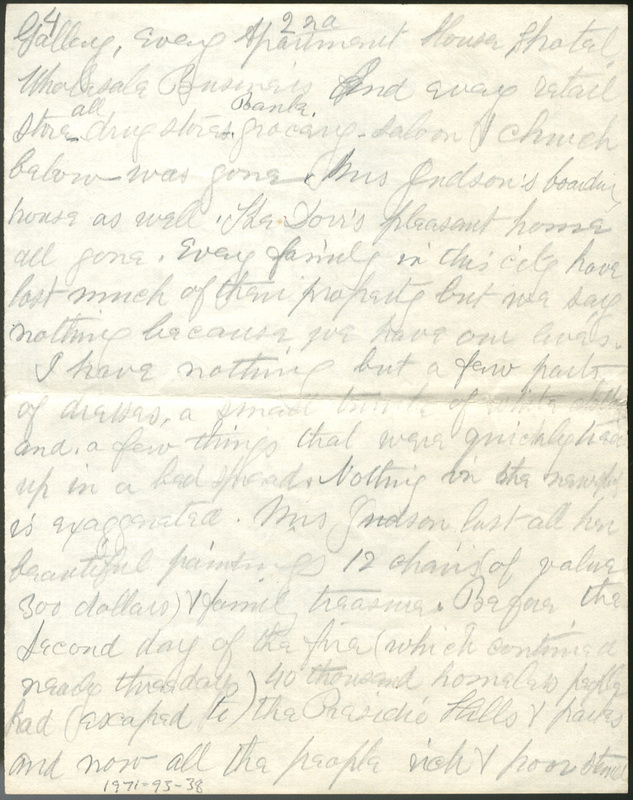 4 22a
Gallery, Every Apartment House & hotel
Wholesale Business And every retail
all Banks.
store - drug stores grocery - saloon & church
below was gone. Mrs Judson's boarding
house as well. The Dovi's pleasant home
all gone. Every family in this city have
lost much of their property but we say
nothing because we have our lives.
I have nothing but a few parts
of dresses, a small trunk of white
and a few things that were quickly tied
up in a bed spread. Nothing in the
is exaggerated. Mrs Judson lost all her
beautiful paintings 12 chairs (of value
300 dollars) & family treasure. Before the
second day of the fire (which continued
nearly three days) 40 thousand homeless people
had (escaped to) the Presidio Hills & parks
and now all the people rich & poor
1971-95-38